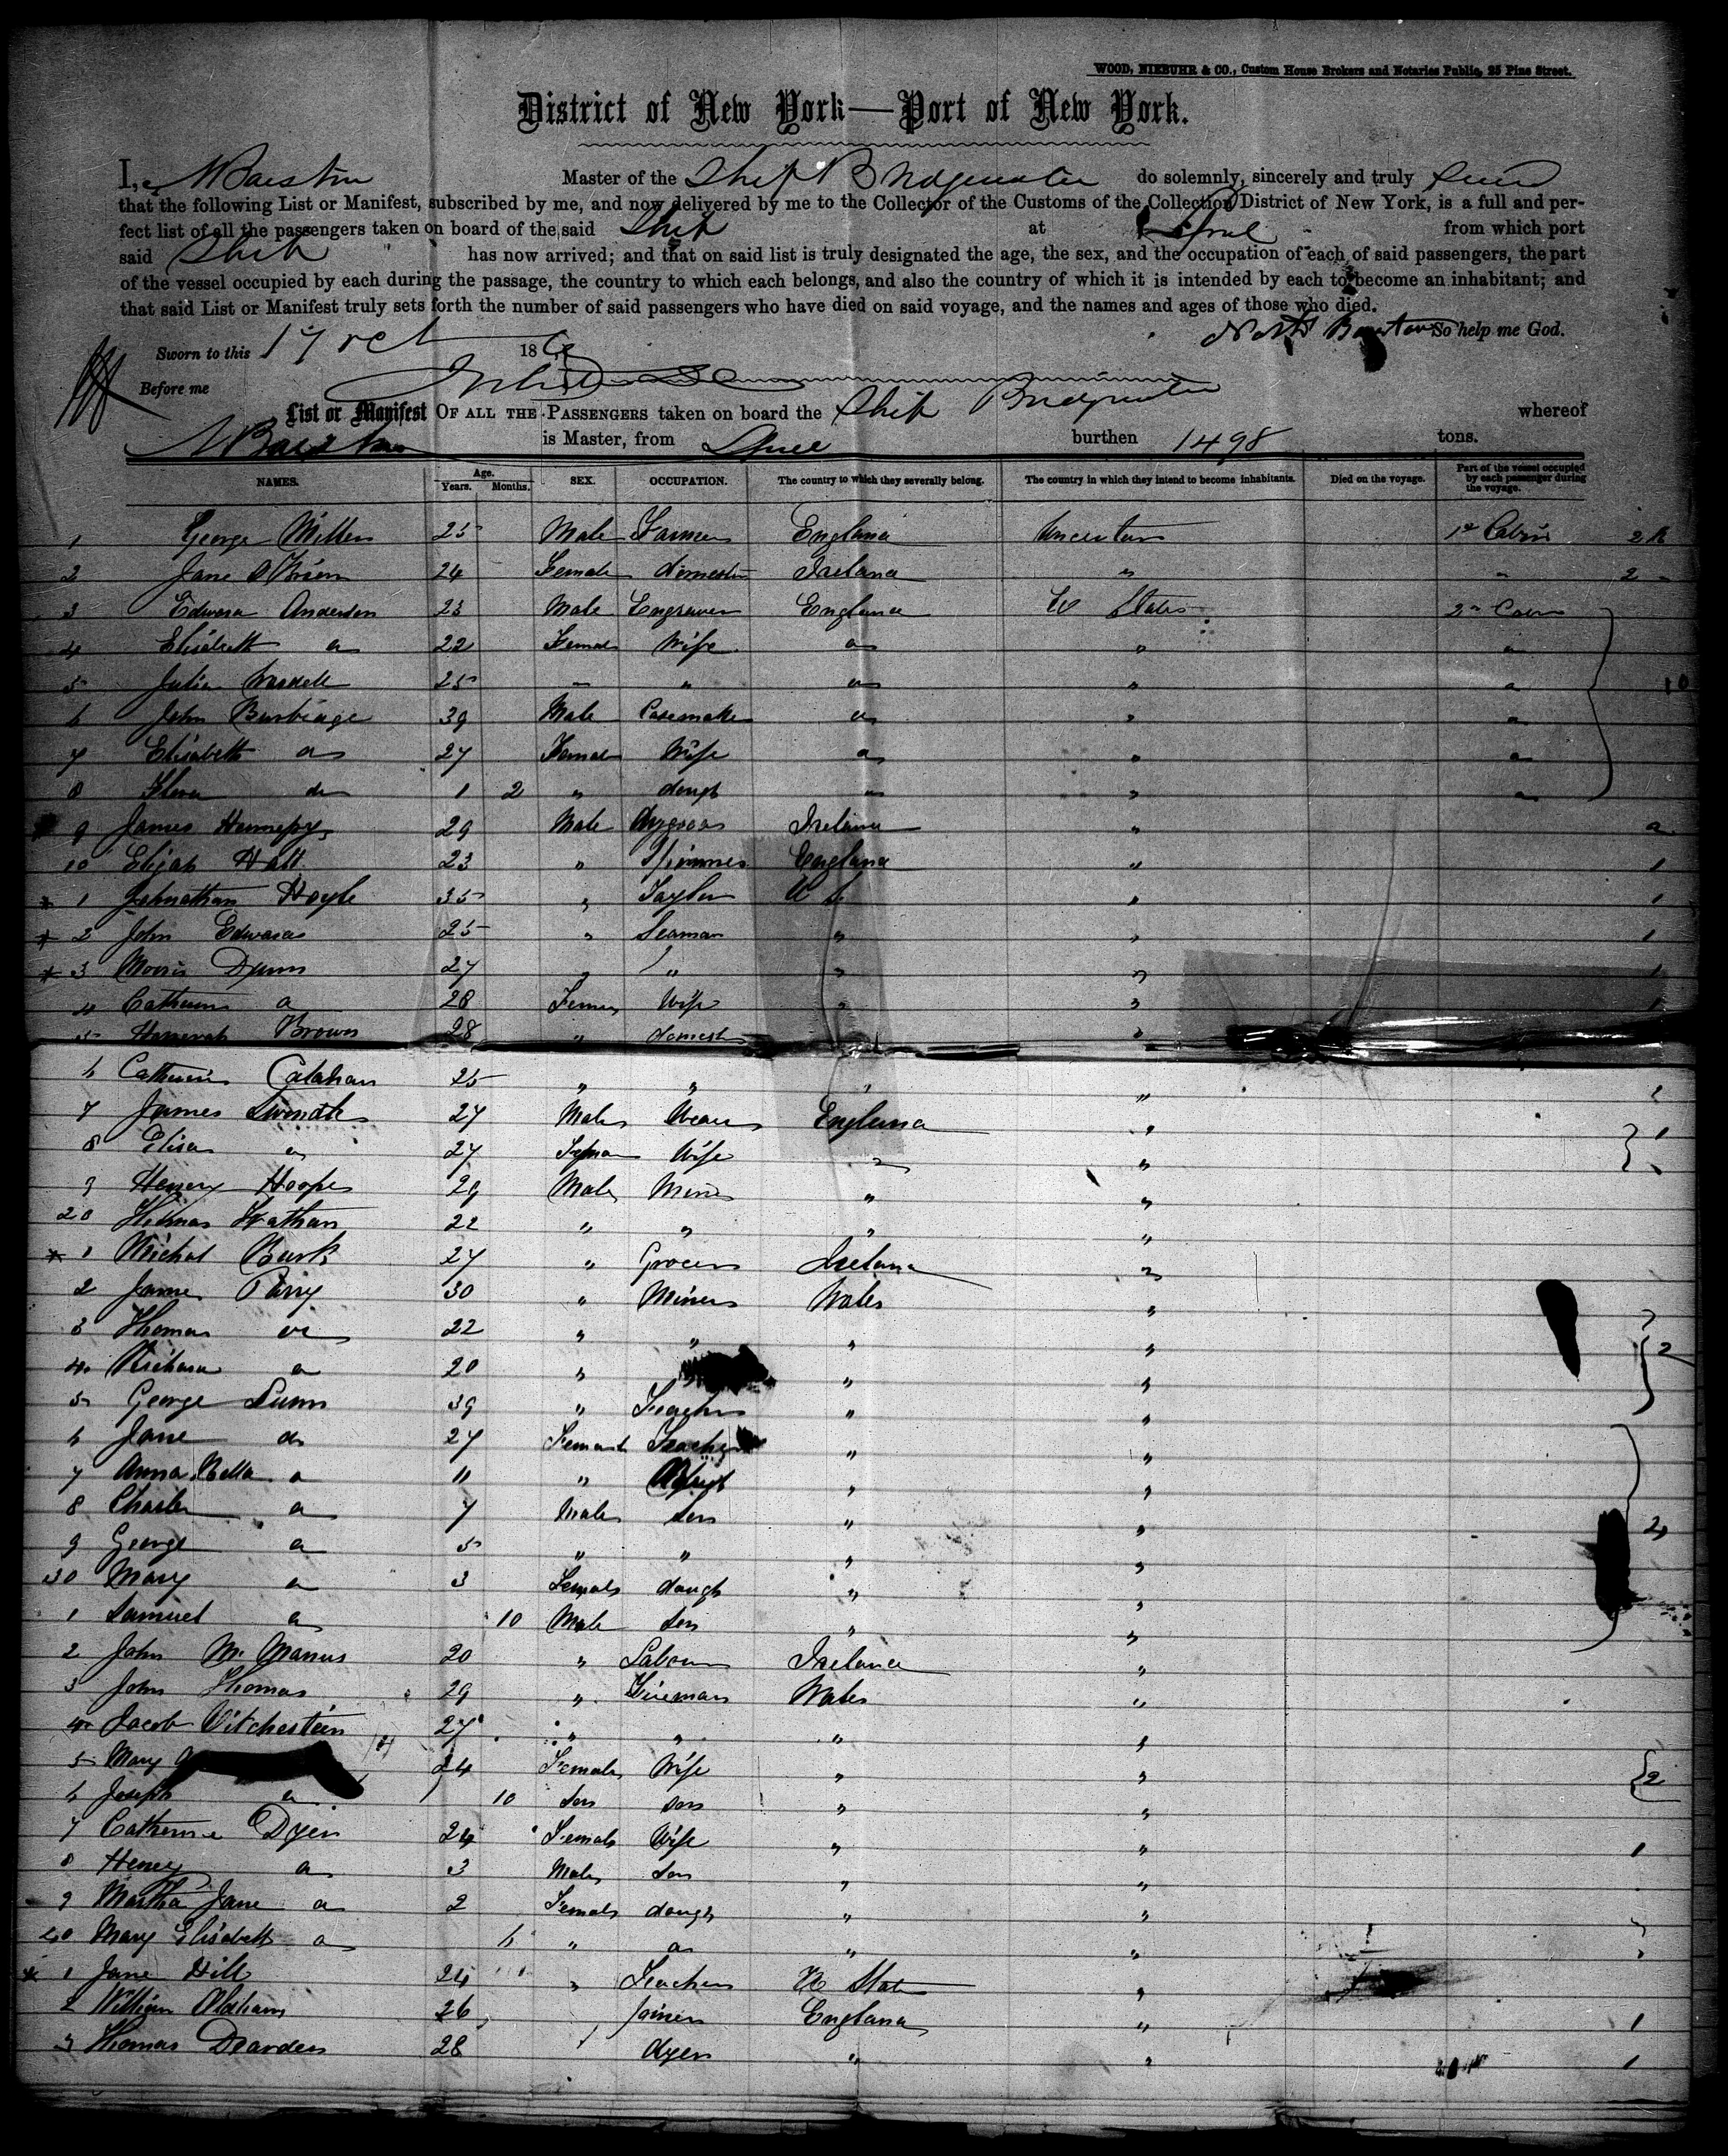 WOOD, NIEBUHR & CO., Custom House Brokers and Notaries Public, 25 Pine Street.
District of New York—Port of New York.
I, Master of the Ship Bridgewater do solemnly, sincerely and truly
that the following List or Manifest, subscribed by me, and now delivered by me to the Collector of the Customs of the Collection District of New York, is a full and per-
fect list of all the passengers taken on board of the said Ship at Lpool from which port
said Ship has now arrived; and that on said list is truly designated the age, the sex, and the occupation of each of said passengers, the part
of the vessel occupied by each during the passage, the country to which each belongs, and also the country of which it is intended by each to become an inhabitant; and
that said List or Manifest truly sets forth the number of said passengers who have died on said voyage, and the names and ages of those who died.
So help me God.
Sworn to this 17 Oct 186
Before me
List or Manifest OF ALL THE PASSENGERS taken on board the Ship Bridgewater whereof
is Master, from burthen 1498 tons.
NAMES. Age. Years. Months. SEX. OCCUPATION. The country to which they severally belong. The country in which they intend to become inhabitants. Died on the voyage. Part of the vessel occupied by each passenger during the voyage.
1 George 25 Male Farmer England Uncertain 1st Cabin 2
2 Jane O'Brien 24 Female domestic Ireland " " 2
3 Edward Anderson 23 Male Engraver England U States 2nd Cabin
4 Elisabeth do 22 Female Wife do " do
5 Julia 25 " " do " do 10
6 John Burbidge 39 Male Casemaker do " do
7 Elisabeth do 27 Female Wife do " do
8 Flora do 1 2 " daugh do " do
9 James 29 Male Ireland "
10 Elijah Hall 23 " Spinner England " 1
1 Johnathan Hoyle 35 " Taylor U S " 1
2 John Edwards 25 " Seaman " " 1
3 Morris Dunn 27 " " " " 1
4 Catherine do 28 Female Wife " " 1
5 Brown 28 " domestic "
6 Catherine Calahan 25 " " " "
7 James 27 Male Weaver England " 1
8 Elisa do 27 Female Wife do "
9 Henery Hooper 29 Male Miner " "
20 Thomas 22 " " " "
1 Michal Burk 27 " Grocer Ireland "
2 James Parry 30 " Miner Wales "
3 Thomas do 22 " " " " 2
4 Richard do 20 " " " "
5 George Lunn 39 " Teacher " "
6 Jane do 27 Female Teacher " "
7 Anna Bella do 11 " " "
8 Charles do 7 Male son " "
9 George do 5 " " " "
30 Mary do 3 Female daugh " "
1 Samuel do 10 Male son " "
2 John McManus 20 " Labourer Ireland "
3 John Thomas 29 " Fireman Wales "
4 Jacob 27 " " " "
5 Mary 24 Female Wife " " 2
6 Joseph do 10 son son " "
7 Catherine Dyer 24 Female Wife " " 1
8 Henry do 3 Male son " "
9 Martha Jane do 2 Female daugh " "
40 Mary Elisabeth do 6 " do " "
1 Jane Hill 24 " Teacher U State "
2 William Oldham 26 Joiner England " 1
3 Thomas Dearden 28 dyer " " 1